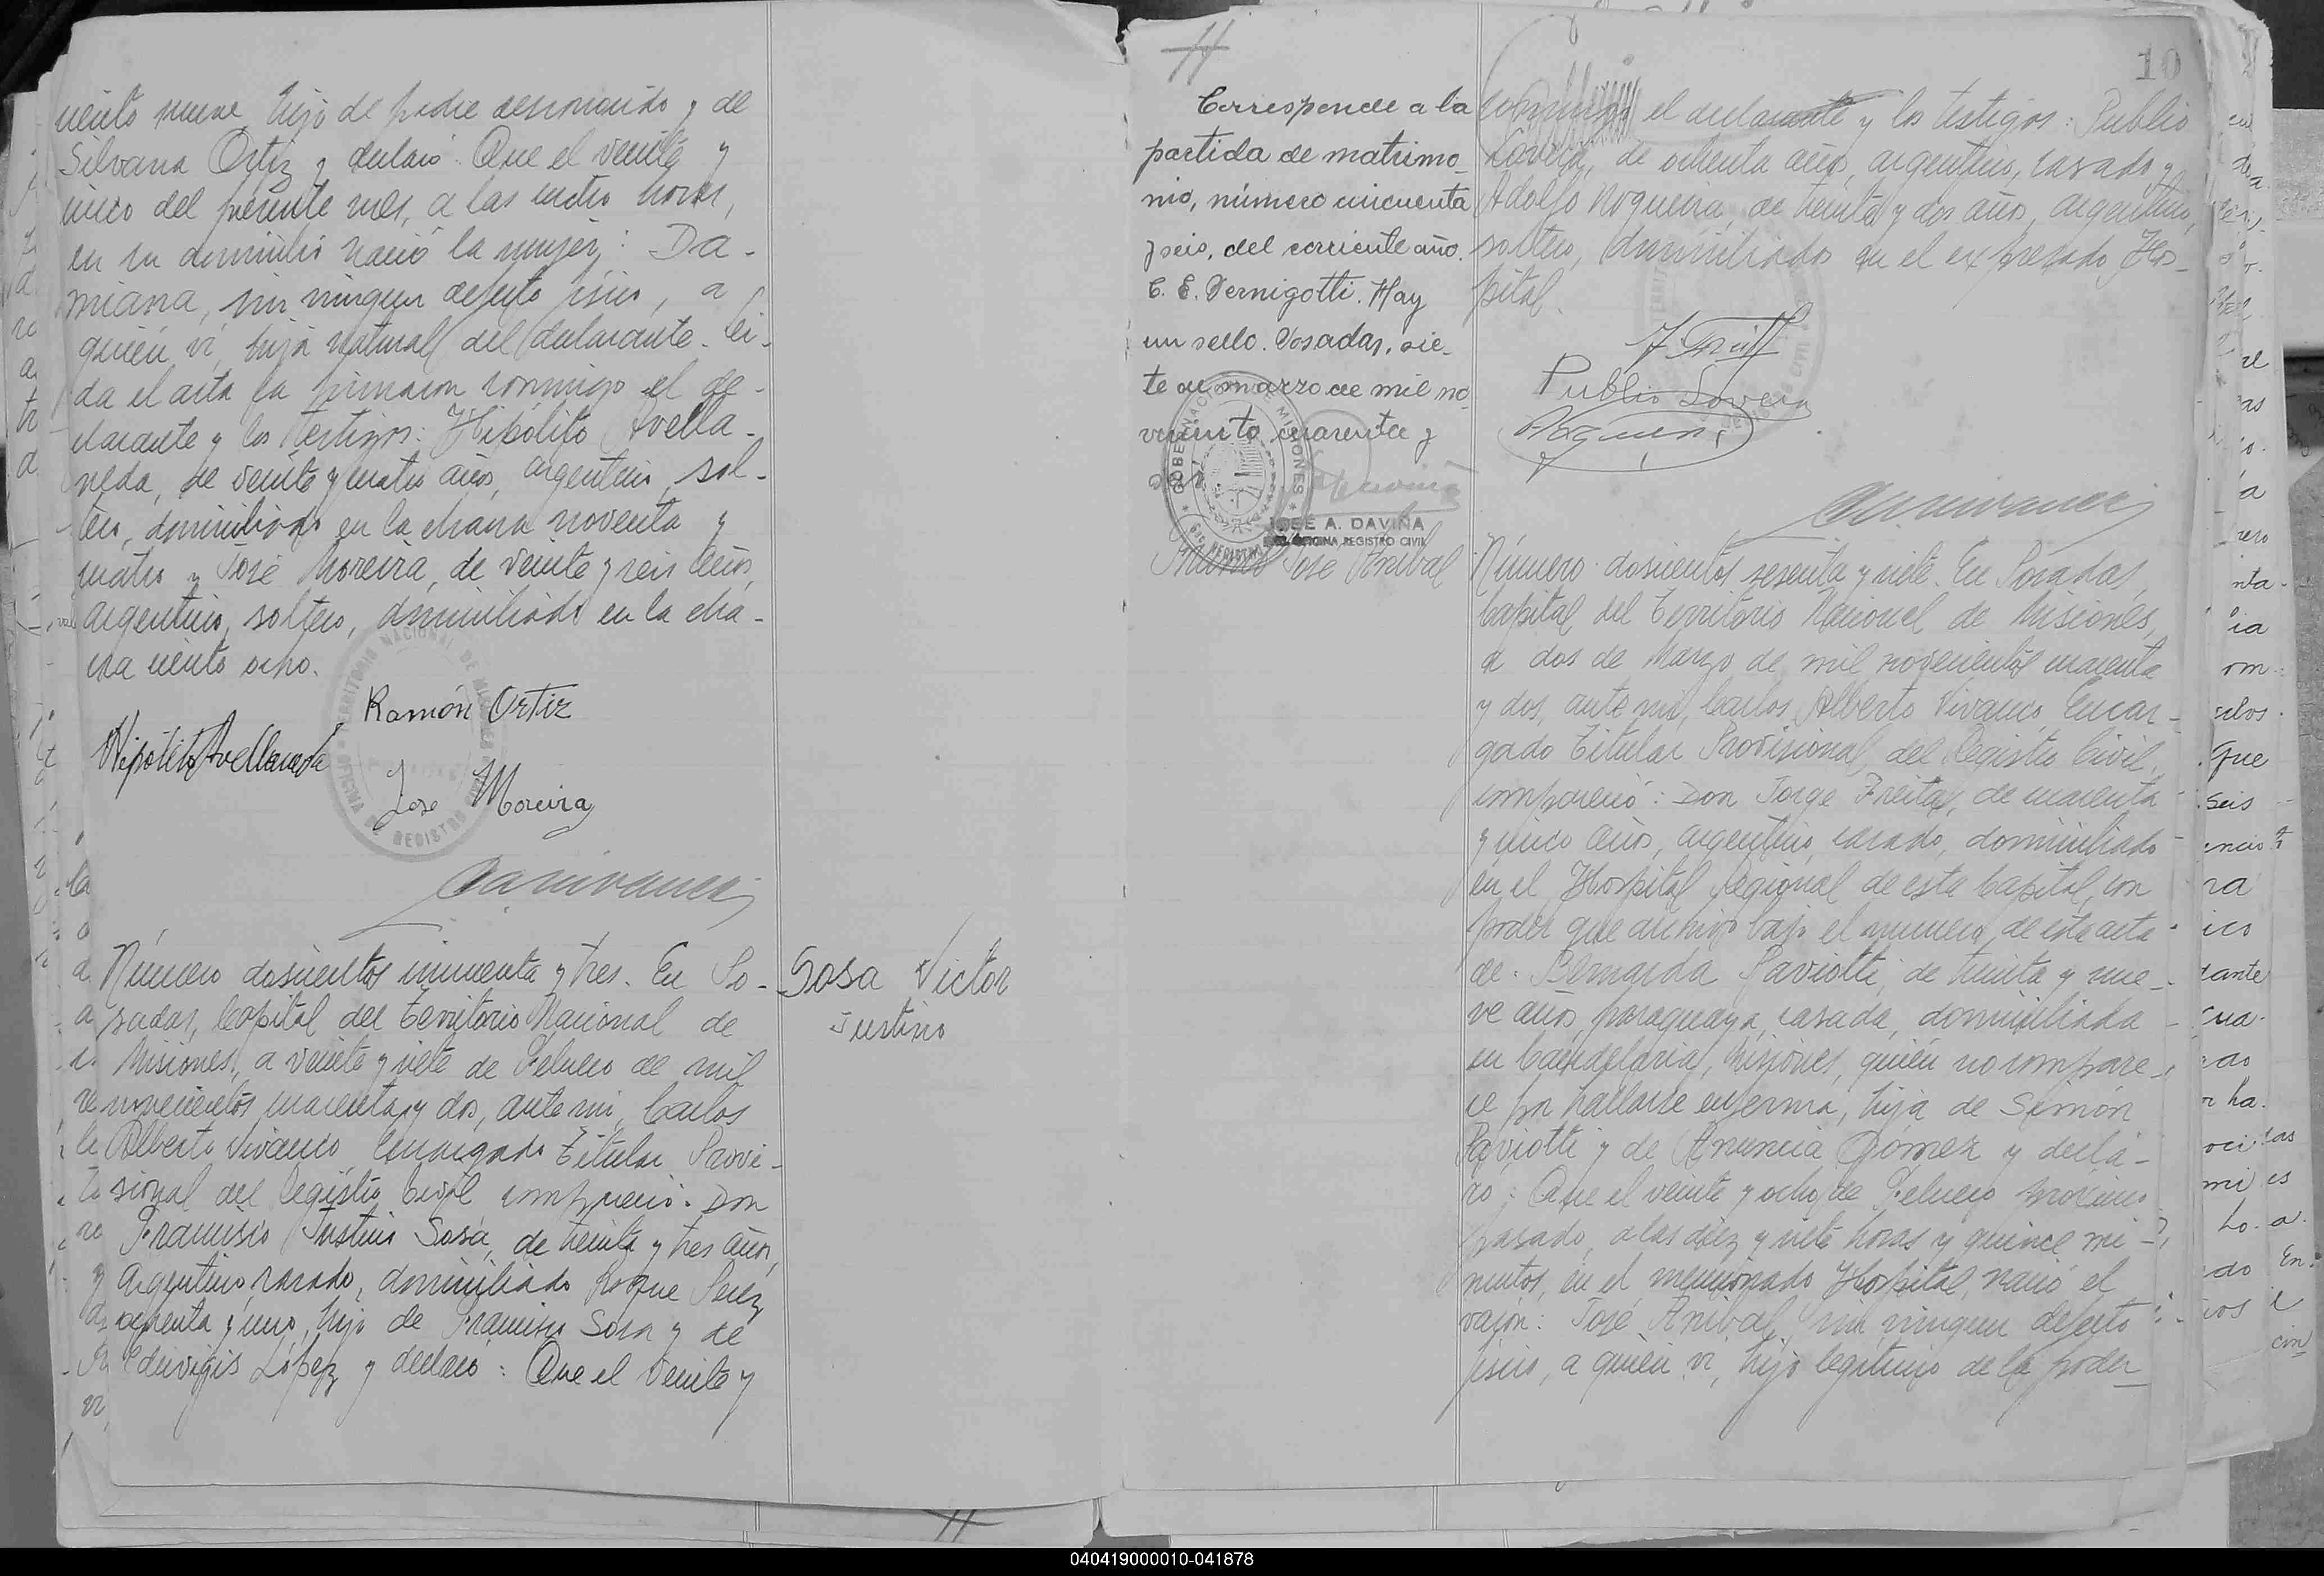 ciento nueve, hijo de padre desconocido y de
Silvana Ortiz y declaró: Que el veinte y
cinco del presente mes, a las cuatro horas,
en su domicilio nació la mujer: Da-
miana, sin ningun defecto fisico, a
quién vi, hija natural del declarante. Leí-
da el acta la firmaron conmigo el de-
clarante y los testigos: Hipólito Avella-
neda, de veinte y cuatro años, argentino, sol-
tero, domiciliado en la chacra noventa y
cuatro y José Moreira, de veinte y seis años,
argentino, soltero, domiciliado en la cha-
cra ciento ocho.
Ramón Ortiz
Hipólito Avellaneda
Jose Moreira
Número doscientos cincuenta y tres. En Po-
sadas, Capital del Territorio Nacional de
Misiones, a veinte y siete de Febrero de mil
novecientos cuarenta y dos, ante mi, Carlos
Alberto Vivanco, Encargado Titular Provi-
sional del Registro Civil, compareció: Don
Francisco Justino Sosa, de treinta y tres años,
argentino, casado, domiciliado Roque Perez
ochenta y uno, hijo de Francisco Sosa y de
Eduvigis López y declaró: Que el veinte y
Sosa Victor
Justino
10
Corresponde a la
partida de matrimo-
nio, número cincuenta
y seis, del corriente año.
C. E. Pernigotti. Hay
un sello. Posadas, sie-
te de marzo de mil no
veciento cuarenta y
dos
JOSÉ A. DAVIÑA
OFICINA REGISTRO CIVIL
José Anibal
conmigo el declarante y los testigos: Publio
Lovera, de ochenta años, argentino, casado y
Adolfo Noqueira, de treinta y dos años, argentino,
soltero, domiciliados en el expresado Hos-
pital.
Publio Lovera
Número doscientos sesenta y siete. En Posadas,
Capital del Territorio Nacional de Misiones,
a dos de Marzo de mil novecientos cuarenta
y dos, ante mi, Carlos Alberto Vivanco, Encar-
gado Titular Provisional, del Registro Civil,
compareció: Don Jorge Freitas, de cuarenta
y cinco años, argentino, casado, domiciliado
en el Hospital Regional de esta Capital, con
poder que archivo bajo el numero de esta acta
de Bernarda Paviotti, de treinta y nue-
ve años, paraguaya, casada, domiciliada
en Candelaria, Misiones, quién no compare-
ce por hallarse enferma, hija de Simón
Paviotti y de Anuncia Gómez y decla-
ró: Que el veinte y ocho de Febrero proximo
pasado, a las diez y siete horas y quince mi-
nutos, en el mencionado Hospital, nació el
varón: José Anibal, sin ningun defecto
fisico, a quién vi, hijo legitimo de la poder
040419000010-041878